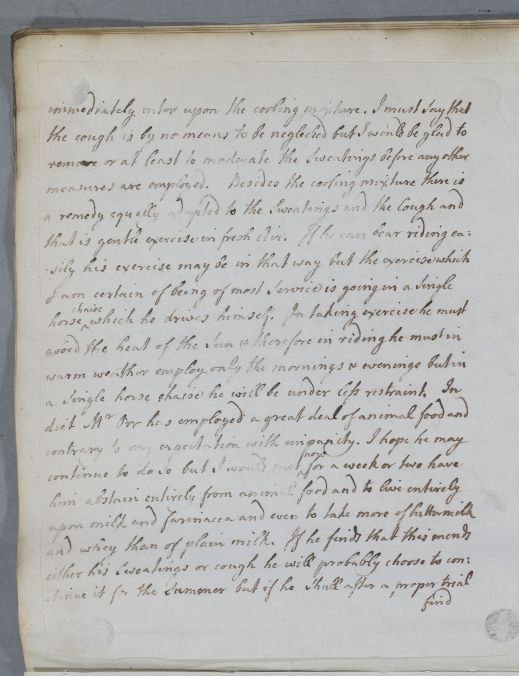 immediately enter upon the cooling mixture. I must say that
the cough is by no means to be neglected but I would be glad to
remove or at least to moderate the Sweatings before any other
measures are employed. Besides the cooling mixture there is
a remedy equally adapted to the Sweatings and the Cough and
that is gentle exercise in fresh Air. If he can bear riding ea:
:sily his exercise may be in that way but the exercise which
I am certain of being of most Service is going in a Single
chaise
horse which he drives himself. In taking exercise he must
avoid the heat of the Sun & therefore in riding he must in
warm weather employ only the mornings & evenings but in
a Single horse chasse he will be under less restraint. In
diet Mr Orr has employed a great deal of animal food and
contrary to my expectation with impunity. I hope he may
continue to do so but I would for a week or two have
him abstain entirely from animal food and to live entirely
upon milk and farinacea and even to take more of buttermilk
and whey than of plain milk. If he finds that this mends
either his Sweatings or cough he will probably choose to con:
:tinue it for the Summer but if he shall after a proper trial
find